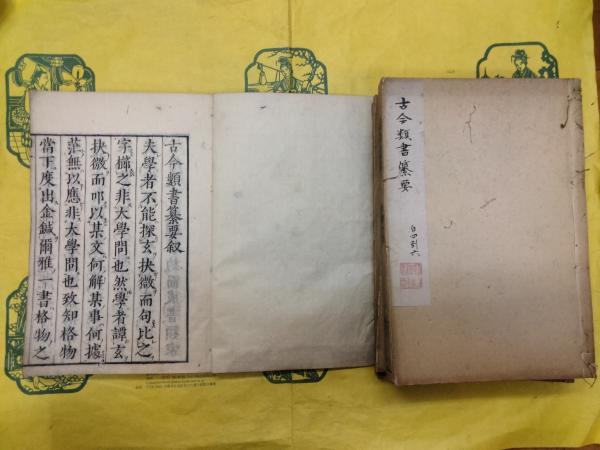 古今類書纂要
自四到六
古今類書纂要叙
夫學者不能探玄抉微而句比之
字櫛之非大學問也然學者譚玄
抉微而叩以某文何解某事何據
茫無以應非大學問也致知格物
當下度出金鍼爾雅一書格物之